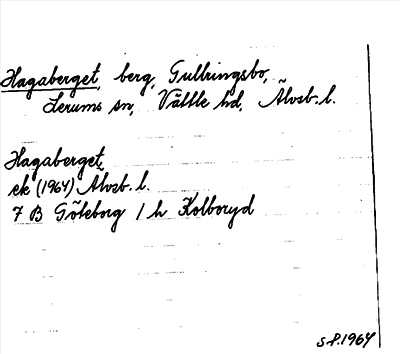 Hagaberget, berg, Gullringsbo,
Lerums sn, Vättle hd, Älvsb. l.
Hagaberget
ek (1964) Älvsb. l.
7 B Göteborg 1 h Kolboryd
1964